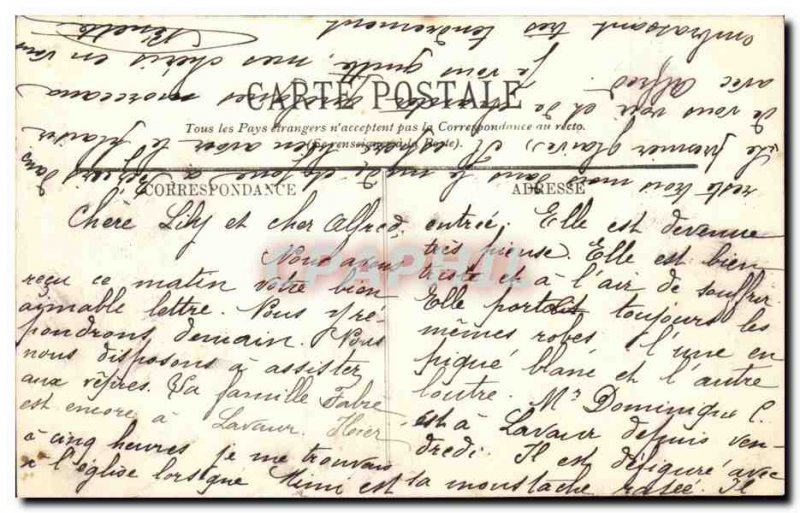 CARTE POSTALE
Tous les Pays étrangers n'acceptent pas la Correspondance au recto.
(Se renseigner à la Poste).
CORRESPONDANCE
ADRESSE
Chère Lily et cher Alfred,
Nous avons
reçu ce matin votre bien
aimable lettre. Nous y ré-
pondrons demain. Nous
nous disposons à assister
aux vêpres. La famille Fabre
est encore à Lavaur. Hier
à cinq heures je me trouvais
à l'église lorsque Mimi est
entrée. Elle est devenue
très pieuse. Elle est bien
triste et a l'air de souffrir.
Elle porte toujours les
mêmes robes l'une en
piqué blanc et l'autre
loutre. Mr Dominique C.
est à Lavaur depuis ven-
dredi. Il est défiguré avec
la moustache rasée. Il
reste trois mois dans le midi à Béziers dans
"Le premier glaive" Il espère bien avoir le plaisir
de vous voir et de morceaux
avec Alfred.
Je vous quitte, mes chéris en vous
embrassant très tendrement